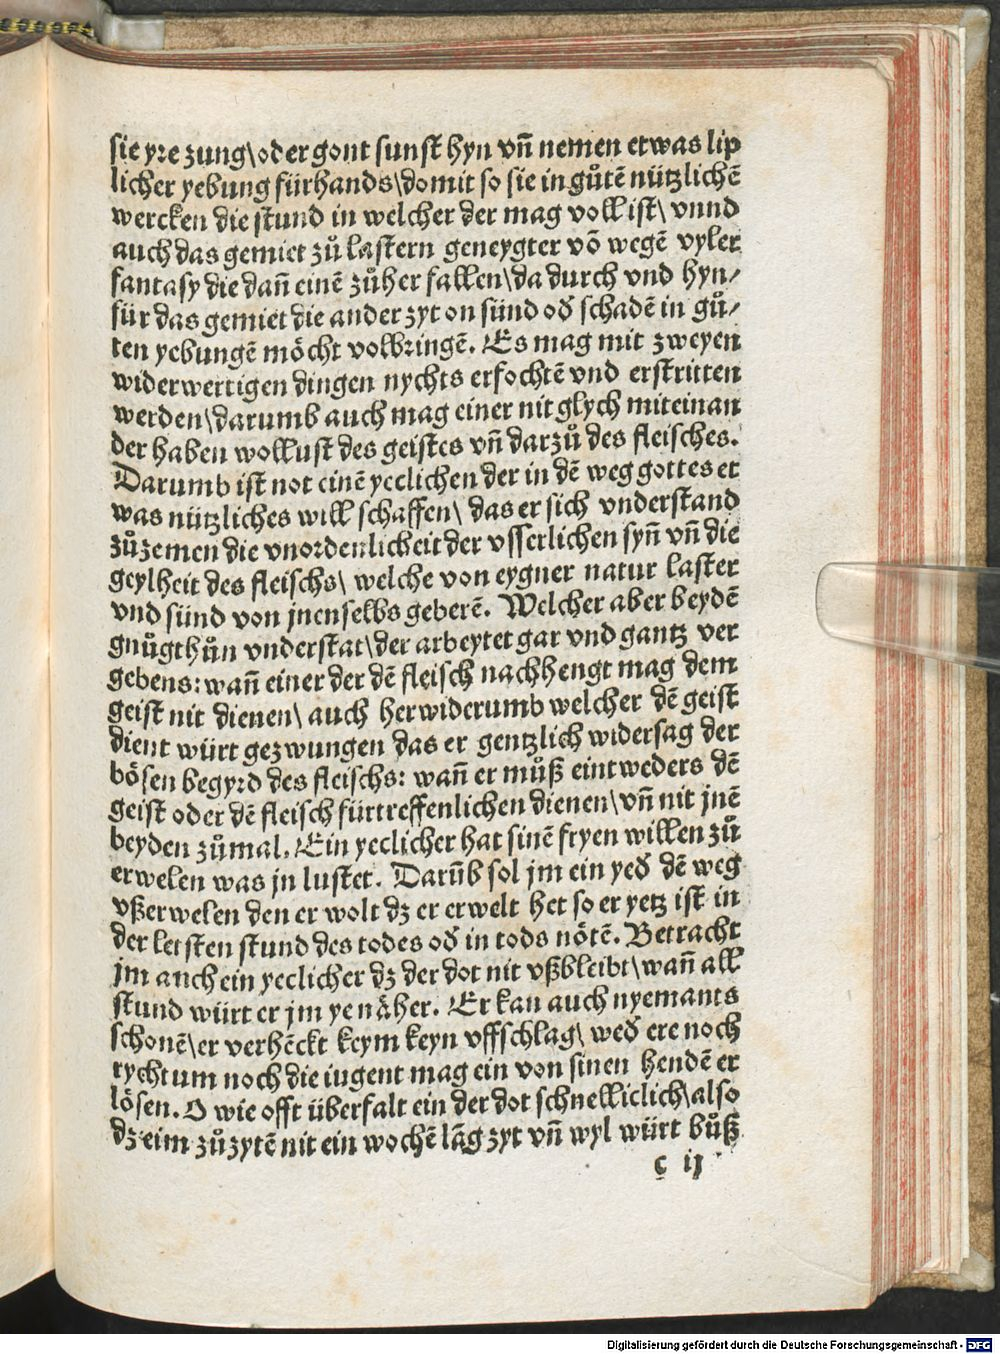 sie yre zung\oder gont sunst hyn vn̄ nemen etwas lip
licher yebung fürhands\domit so sie in gůtē nützlichē
wercken die stund in welcher der mag voll ist\ vnnd
auch das gemiet zů lastern geneygter vō wegē vyler
fantasy die dan̄ einē zůher fallen\da durch vnd hyn⸗
für das gemiet die ander zyt on sünd od̕ schadē in gů⸗
ten yebungē möcht volbringē. Es mag mit zweyen
widerwertigen dingen nychts erfochtē vnd erstritten
werden\darumb auch mag einer nit glych miteinan
der haben wollust des geistes vn̄ darzů des fleisches.
Darumb ist not einē yeclichen der in dē weg gottes et
was nützliches will schaffen\ das er sich vnderstand
zůzemen die vnordenlicheit der vsserlichen syn̄ vn̄ die
geylheit des fleischs\ welche von eygner natur laster
vnd sünd von jnenselbs geberē. Welcher aber beydē
gnůgthůn vnderstat\der arbeytet gar vnd gantz ver
gebens: wan̄ einer der dē fleisch nachhengt mag dem
geist nit dienen\ auch herwiderumb welcher dē geist
dient würt gezwungen das er gentzlich widersag der
bösen begyrd des fleischs: wan̄ er můß eintweders dē
geist oder dē fleisch fürtreffenlichen dienen\vn̄ nit jnē
beyden zůmal. Ein yeclicher hat sinē fryen willen zů
erwelen was jn lustet. Darūb sol jm ein yed̕ dē weg
vßerwelen den er wolt dz er erwelt het so er yetz ist in
der letsten stund des todes od̕ in tods nötē. Betracht
jm auch ein yeclicher dz der dot nit vßbleibt\wan̄ all
stund würt er jm ye näher. Er kan auch nyemants
schonē\er verhēckt keym keyn vffschlag\ wed̕ ere noch
rychtum noch die iugent mag ein von sinen hendē er
lösen. O wie offt überfalt ein der dot schnelliclich\also
dz eim zůzytē nit ein wochē lāg zyt vn̄ wyl würt bůß
c ij
Digitalisierung gefördert durch die Deutsche Forschungsgemeinschaft - DFG